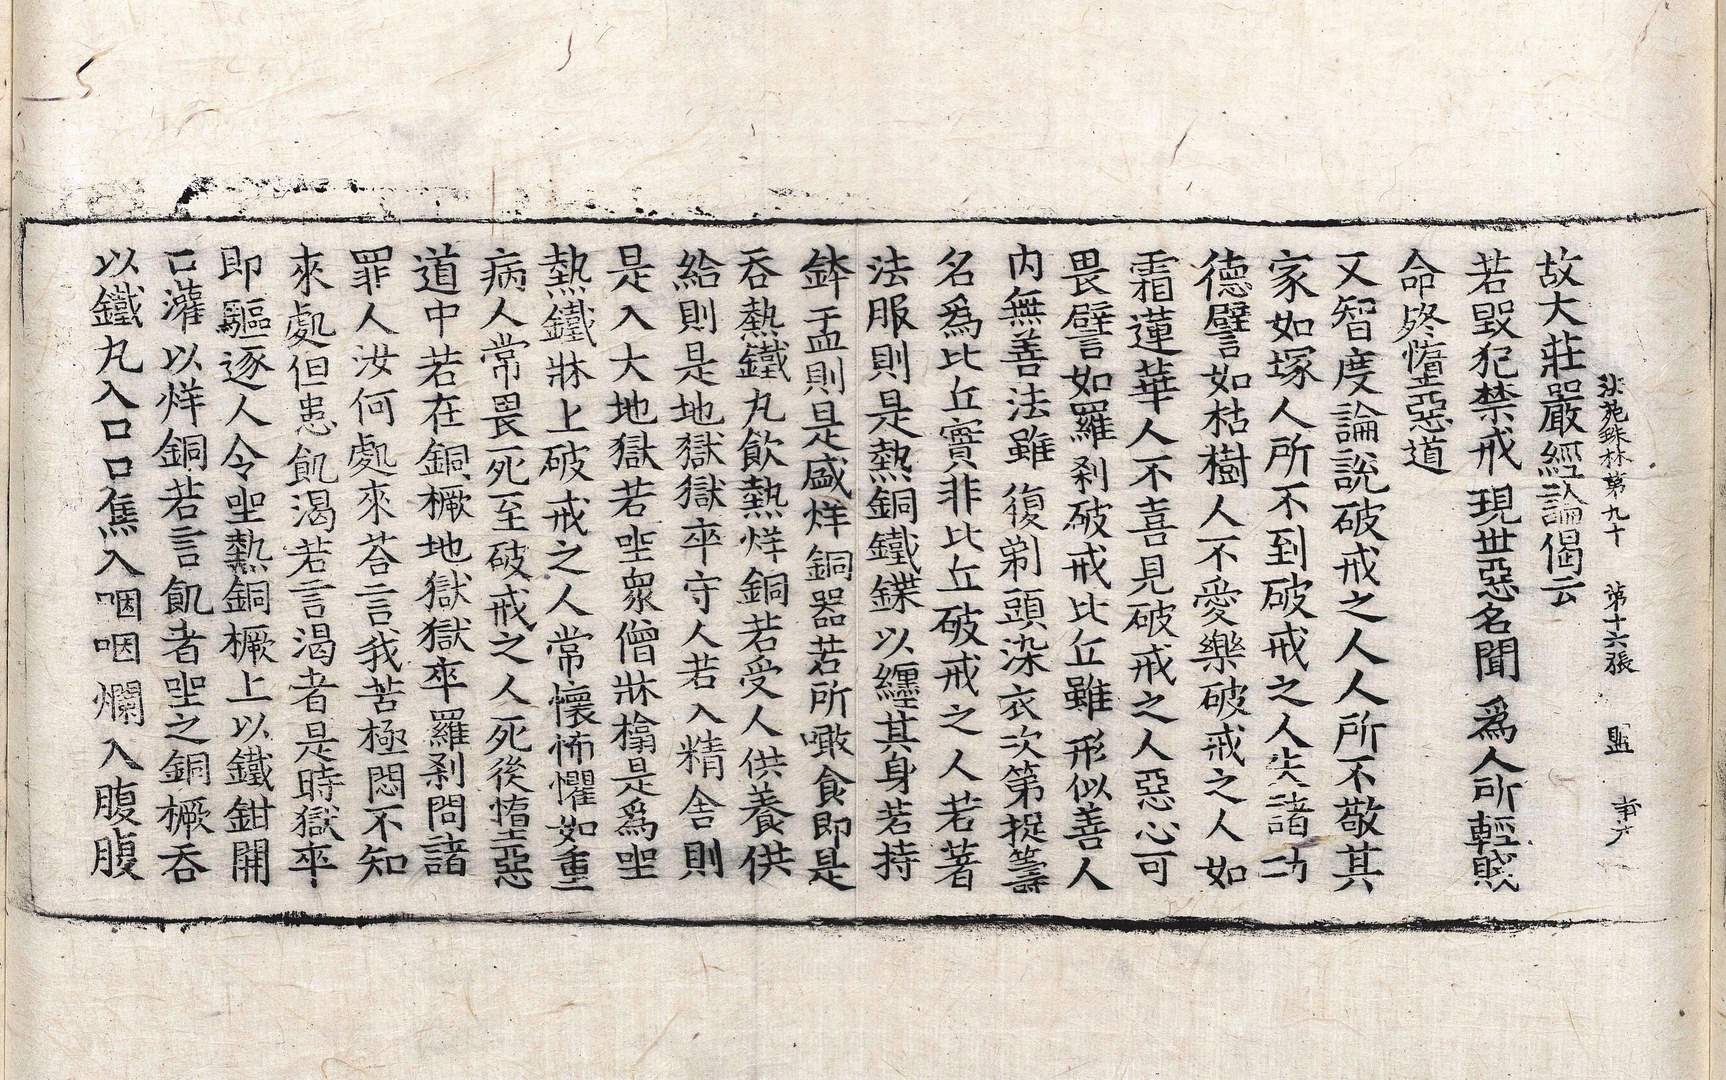 法苑珠林第九十 第十六張
故大莊嚴經論偈云
若毀犯禁戒 現世惡名聞 爲人所輕賤
命終墮惡道
又智度論說破戒之人人所不敬其
家如塚人所不到破戒之人失諸功
德譬如枯樹人不愛樂破戒之人如
霜蓮華人不喜見破戒之人惡心可
畏譬如羅刹破戒比丘雖形似善人
內無善法雖復剃頭染衣次第捉籌
名爲比丘實非比丘破戒之人若著
法服則是熱銅鐵鍱以纏其身若持
鉢盂則是盛烊銅器若所噉食卽是
吞熱鐵丸飮熱烊銅若受人供養供
給則是地獄獄卒守人若入精舍則
是入大地獄若坐衆僧牀榻是爲坐
熱鐵牀上破戒之人常懷怖懼如重
病人常畏死至破戒之人死後墮惡
道中若在銅橛地獄獄卒羅刹問諸
罪人汝何處來荅言我苦極悶不知
來處但患飢渴若言渴者是時獄卒
卽驅逐人令坐熱銅橛上以鐵鉗開
口灌以烊銅若言飢者坐之銅橛吞
以鐵丸入口口燋入咽咽爛入腹腹